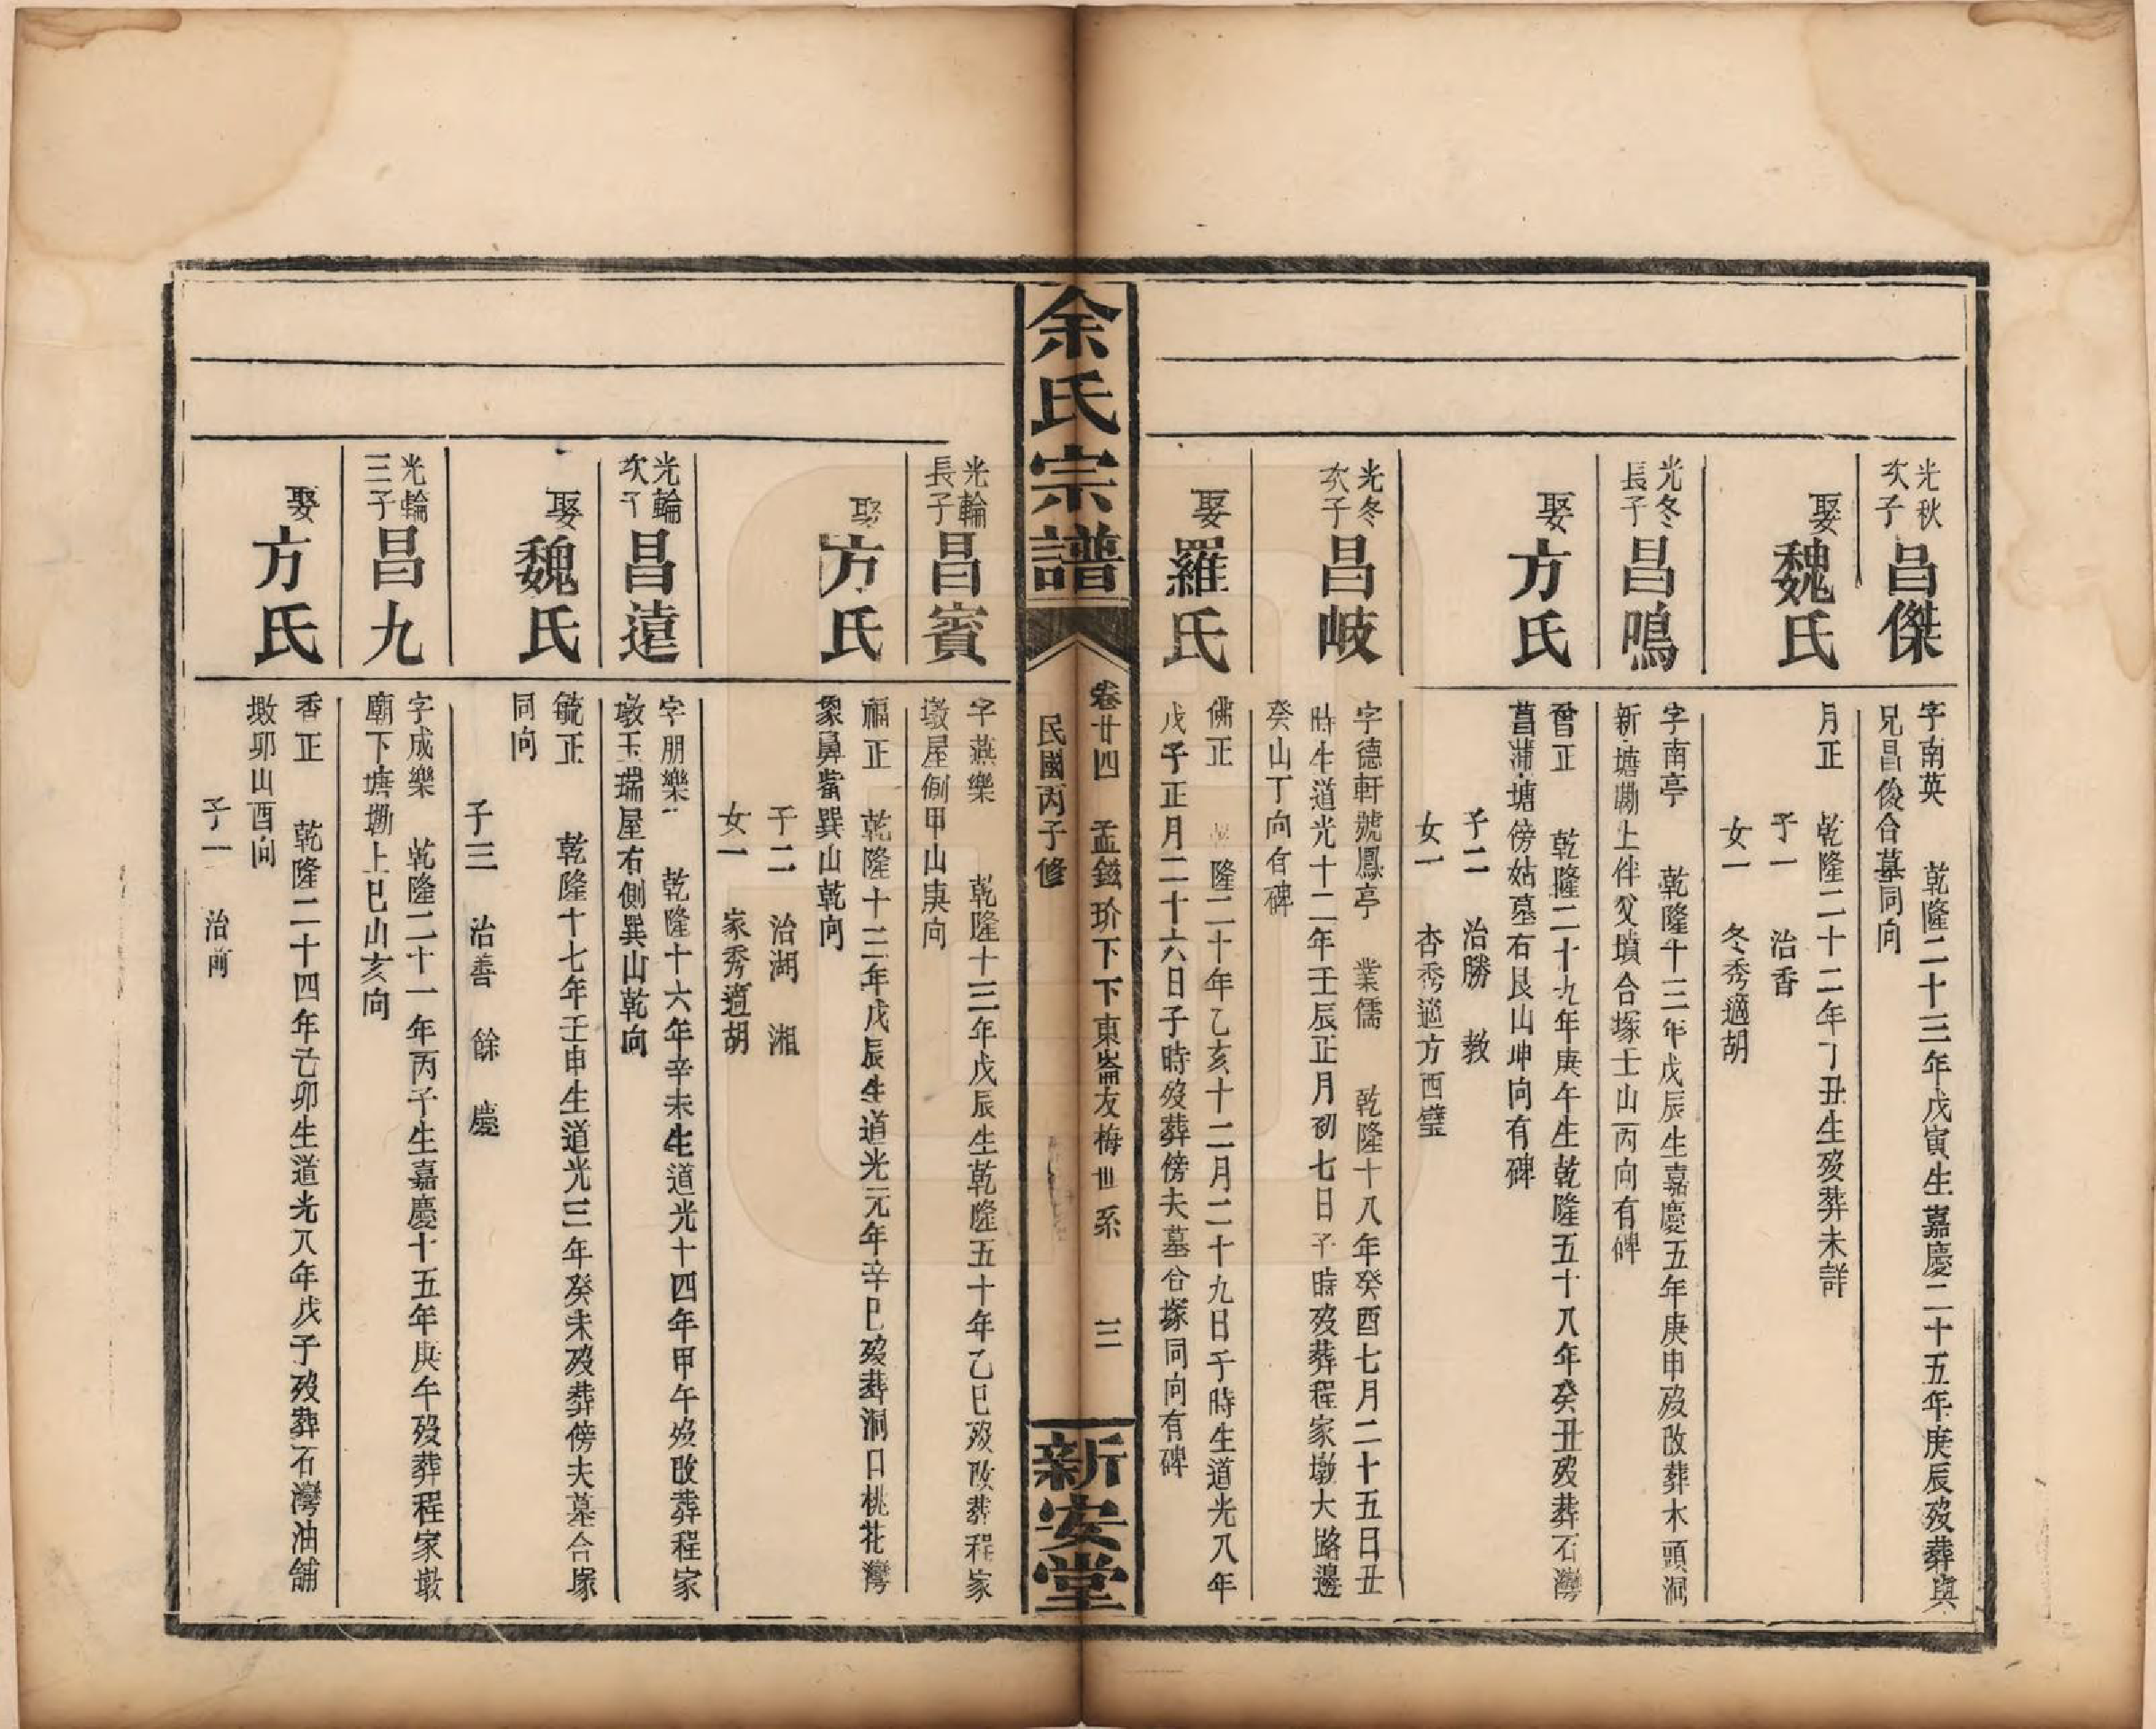 光秋
次子
昌傑
字南英 乾隆二十三年戊寅生嘉慶二十五年庚辰歿葬與
兄昌俊合墓同向
娶魏氏
月正 乾隆二十二年丁丑生歿葬未詳
子一 治香
女一 冬秀適胡
光冬
長子
昌鳴
字南亭 乾隆十三年戊辰生嘉慶五年庚申歿改葬木頭洞
新塘墈上伴父墳合塚壬山丙向有碑
娶方氏
曾正 乾隆二十九年庚午生乾隆五十八年癸丑歿葬石灣
菖蒲塘傍姑墓右艮山坤向有碑
子二 治勝 教
女一 杏秀適方西璧
光冬
次子
昌岐
字德軒號鳳亭 業儒 乾隆十八年癸酉七月二十五日丑
時生道光十二年壬辰正月初七日子時歿葬程家墩大路邊
癸山丁向有碑
娶羅氏
佛正 隆二十年乙亥十二月二十九日子時生道光八年
戊子正月二十六日子時歿葬傍夫墓合塚同向有碑
余氏宗譜
卷廿四 孟鎡玠下下東崙友梅世系 三
民國丙子修
新安堂
光輪
長子
昌賓
字燕樂 乾隆十三年戊辰生乾隆五十年乙巳歿改葬程家
墩屋側甲山庚向
娶方氏
福正 乾隆十三年戊辰生道光元年辛巳歿葬洞口桃花灣
象鼻嘴巽山乾向
子二 治湖 湘
女一 家秀適胡
光輪
次子
昌遠
字朋樂 乾隆十六年辛未生道光十四年甲午歿改葬程家
墩玉瑞屋右側巽山乾向
娶魏氏
毓正 乾隆十七年壬申生道光三年癸未歿葬傍夫墓合塚
同向
子三 治善 餘 慶
光輪
三子
昌九
字成樂 乾隆二十一年丙子生嘉慶十五年庚午歿葬程家墩
廟下塘墈上巳山亥向
娶方氏
香正 乾隆二十四年己卯生道光八年戊子歿葬石灣油舖
墩卯山酉向
子一 治